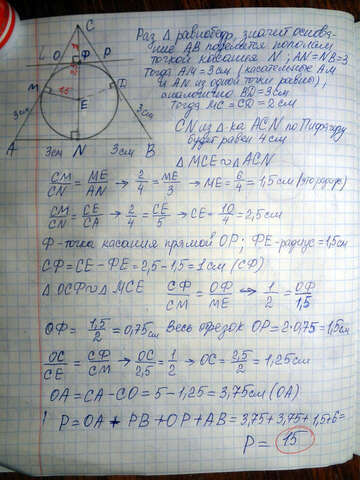 C
L O Ф P
1
2,5
M 1,5 D
E
3см 3см
A 3см N 3см B
Раз Δ равнобедр, значит основа-
ние AB поделится пополам
точкой касания N; AN=NB=3
Тогда AM=3см (касательные AM
и AN из одной точки равны),
аналогично BD=3см
Тогда MC=CD=2см
CN из Δ-ка ACN по Пифагору
будет равен 4см
ΔMCE∾ΔACN
CM/CN = ME/AN → 2/4 = ME/3 → ME = 6/4 = 1,5см (это радиус)
CM/CN = CE/CA → 2/4 = CE/5 → CE = 10/4 = 2,5см
Ф-точка касания прямой OP; ФЕ-радиус=1,5см
СФ=СЕ-ФЕ=2,5-1,5=1см (СФ)
ΔОСФ∾ΔMCE СФ/СМ = ОФ/МЕ → 1/2 = ОФ/1,5
ОФ = 1,5/2 = 0,75см Весь отрезок OP=2·0,75=1,5см
OC/CE = СФ/СМ → OC/2,5 = 1/2 → OC = 2,5/2 = 1,25см
OA=CA-CO=5-1,25=3,75см (OA)
P=OA+PB+OP+AB=3,75+3,75+1,5+6=
P= 15